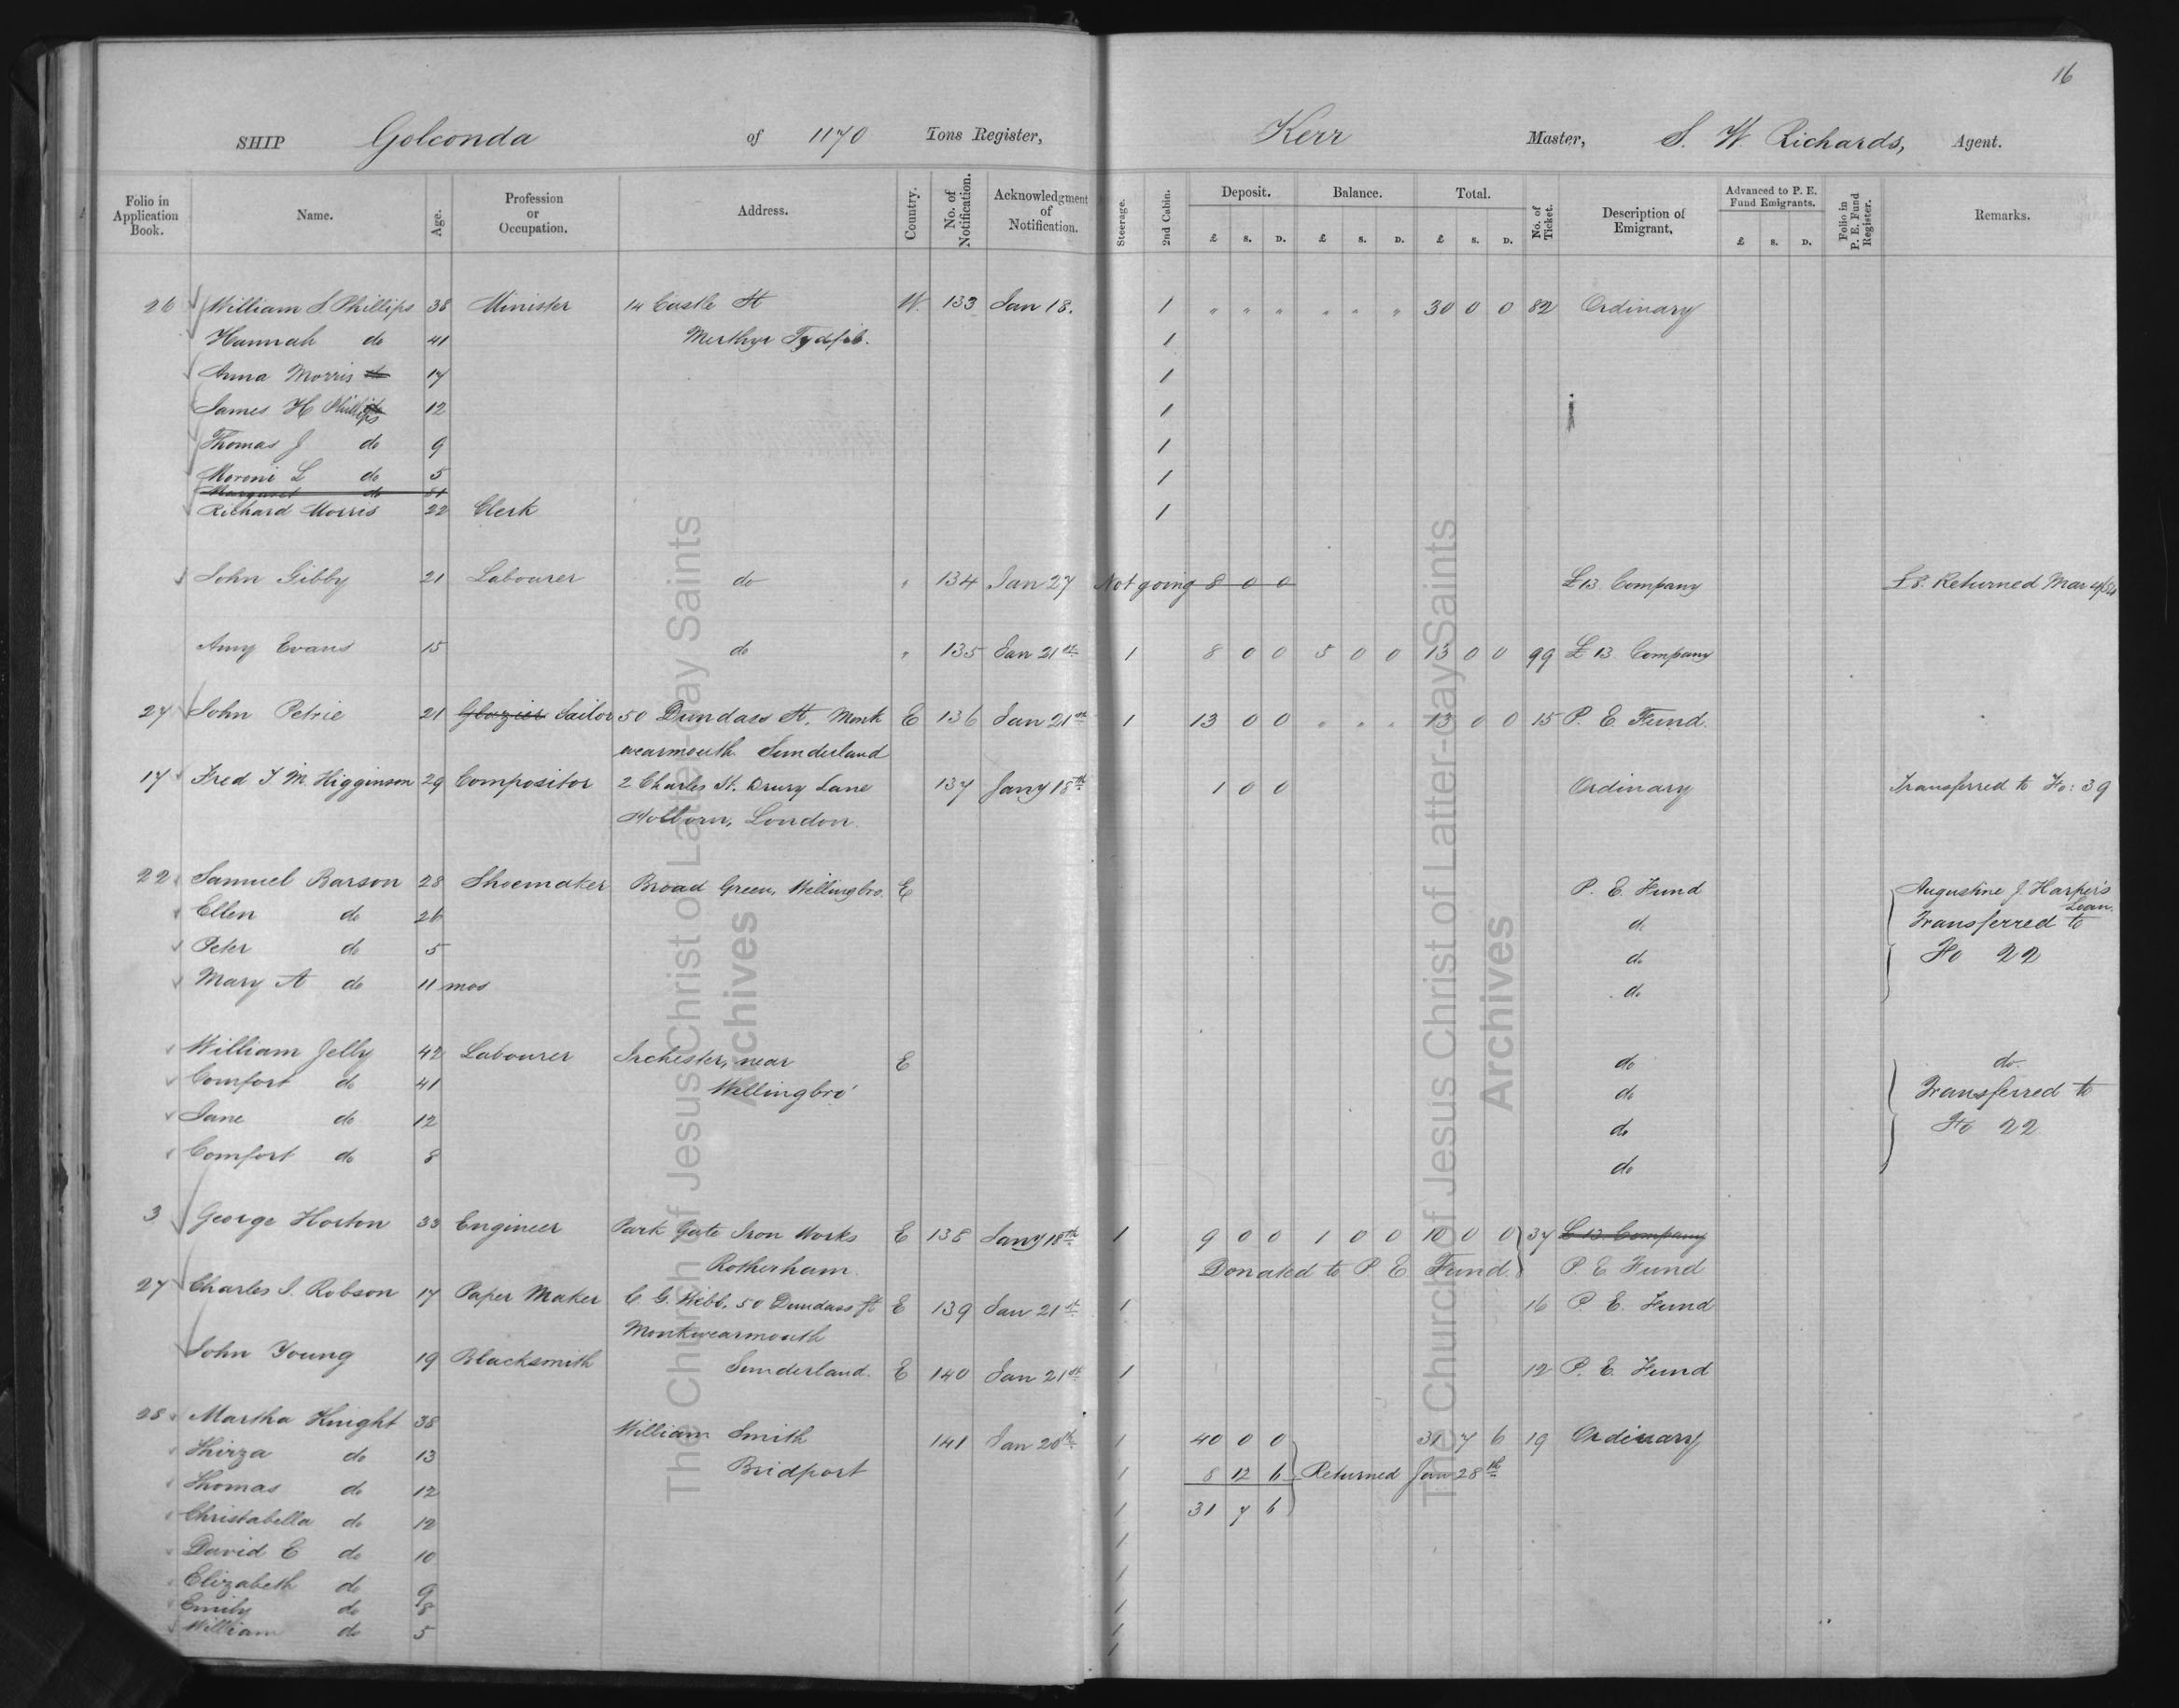 16
SHIP Golconda of 1170 Tons Register, Kerr Master, S. W. Richards, Agent.
Folio in Application Book. Name. Age. Profession or Occupation. Address. Country. No. of Notification. Acknowledgment of Notification. Steerage. 2nd Cabin. Deposit. £ S. D. Balance. £ S. D. Total. £ S. D. No. of Ticket. Description of Emigrant. Advanced to P. E. Fund Emigrants. £ S. D. Folio in P. E. Fund Register. Remarks.
26 William S. Phillips 38 Minister 14 Castle St W. 133 Jan 18. 1 " " " " " " 30 0 0 82 Ordinary
Hannah do 41 Merthyr Tydfil. 1
Anna Morris do 17 1
James H Phillips 12 1
Thomas J do 9 1
Moroni L do 5 1
Margaret do 51
Richard Morris 22 Clerk 1
John Gibby 21 Labourer do " 134 Jan 27 Not going 8 0 0 £13 Company £8. Returned Mar
Amy Evans 15 do " 135 Jan 21st 1 8 0 0 5 0 0 13 0 0 99 £13 Company
27 John Petrie 21 Glazier Sailor 50 Dundass St. Monk E 136 Jan 21st 1 13 0 0 " " " 13 0 0 15 P. E. Fund.
wearmouth Sunderland
17 Fred T M. Higginson 29 Compositor 2 Charles St. Drury Lane 137 Jany 18th 1 0 0 Ordinary Transferred to Fo: 39
Holborn, London.
22 Samuel Barson 28 Shoemaker Broad Green, Wellingbro. E P. E. Fund Augustine J. Harper's Loan.
Ellen do 26 do Transferred to
Peter do 5 do Fo 22
Mary A do 11 mos do
William Jelly 42 Labourer Irchester, near E do do.
Comfort do 41 Wellingbro' do Transferred to
Jane do 12 do Fo 22
Comfort do 8 do
3 George Horton 33 Engineer Park Gate Iron Works E 138 Jany 18th 1 9 0 0 1 0 0 10 0 0 37 £13 Company
Rotherham. Donated to P. E. Fund. P. E. Fund
27 Charles J. Robson 17 Paper Maker C. G. Webb, 50 Dundass St E 139 Jan 21st 1 16 P. E. Fund
Monkwearmouth
John Young 19 Blacksmith Sunderland. E 140 Jan 21st 1 12 P. E. Fund
28 Martha Knight 38 William Smith 141 Jan 20th 1 40 0 0 31 7 6 19 Ordinary
Thirza do 13 Bridport 1 8 12 6 Returned Jan 28th
Thomas do 12 1 31 7 6
Christabella do 12 1
David E do 10 1
Elizabeth do 9 1
Emily do 8 1
William do 5 1
The Church of Jesus Christ of Latter-day Saints
Archives
The Church of Jesus Christ of Latter-day Saints
Archives